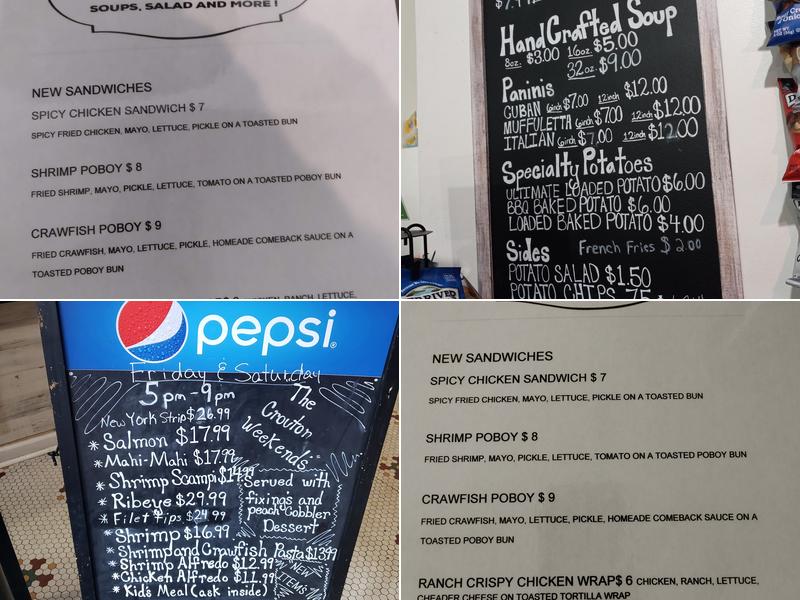 SOUPS, SALAD AND MORE !
NEW SANDWICHES
SPICY CHICKEN SANDWICH $ 7
SPICY FRIED CHICKEN, MAYO, LETTUCE, PICKLE ON A TOASTED BUN
SHRIMP POBOY $ 8
FRIED SHRIMP, MAYO, PICKLE, LETTUCE, TOMATO ON A TOASTED POBOY BUN
CRAWFISH POBOY $ 9
FRIED CRAWFISH, MAYO, LETTUCE, PICKLE, HOMEADE COMEBACK SAUCE ON A
TOASTED POBOY BUN
CHICKEN, RANCH, LETTUCE,
HandCrafted Soup
8oz. $3.00 16oz $5.00
32oz. $9.00
Paninis
CUBAN 6inch $7.00 12inch $12.00
MUFFULETTA 6inch $7.00 12inch $12.00
ITALIAN 6inch $7.00 12inch $12.00
Specialty Potatoes
ULTIMATE LOADED POTATO $6.00
BBQ BAKED POTATO $6.00
LOADED BAKED POTATO $4.00
Sides French Fries $2.00
POTATO SALAD $1.50
POTATO CHIPS .75
pepsi
Friday & Saturday
5pm-9pm
The Crouton Weekend's
New York Strip $26.99
* Salmon $17.99
* Mahi-Mahi $17.99
* Shrimp Scampi $14.99
* Ribeye $29.99
* Filet Tips $24.99
* Shrimp $16.99
* Shrimp and Crawfish Pasta $13.99
* Shrimp Alfredo $12.99
* Chicken Alfredo $11.99
* Kids Meal (ask inside)
Served with
fixing's and
peach Cobbler
Dessert
NEW
ITEMS
NEW SANDWICHES
SPICY CHICKEN SANDWICH $ 7
SPICY FRIED CHICKEN, MAYO, LETTUCE, PICKLE ON A TOASTED BUN
SHRIMP POBOY $ 8
FRIED SHRIMP, MAYO, PICKLE, LETTUCE, TOMATO ON A TOASTED POBOY BUN
CRAWFISH POBOY $ 9
FRIED CRAWFISH, MAYO, LETTUCE, PICKLE, HOMEADE COMEBACK SAUCE ON A
TOASTED POBOY BUN
RANCH CRISPY CHICKEN WRAP$ 6 CHICKEN, RANCH, LETTUCE,
CHEADER CHEESE ON TOASTED TORTILLA WRAP